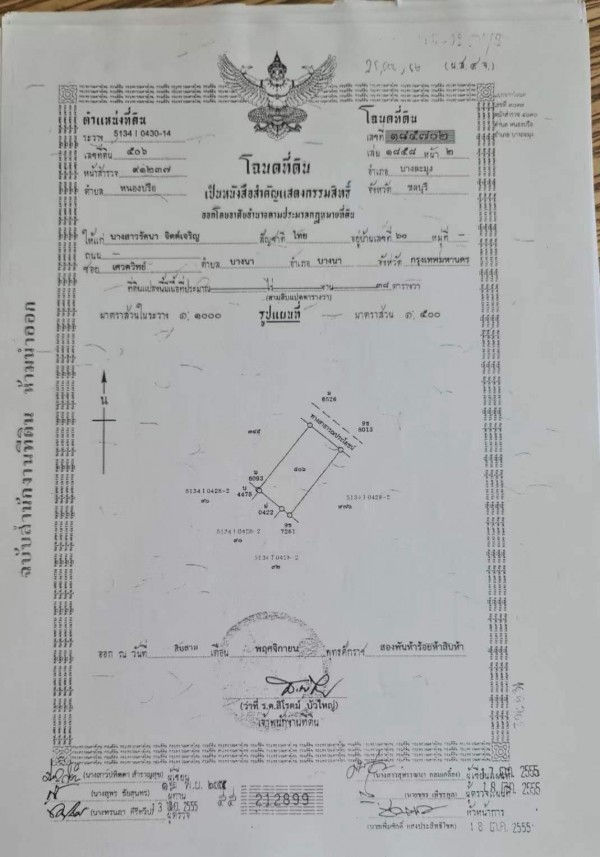 (น.ส.๔ จ.)
ตำแหน่งที่ดิน
ระวาง 5134 I 0430-14
เลขที่ดิน ๕๐๖
หน้าสำรวจ ๙๑๒๓๗
ตำบล หนองปรือ
โฉนดที่ดิน
เลขที่ ๑๘๕๗๐๒
เล่ม ๑๘๕๘ หน้า ๒
อำเภอ บางละมุง
จังหวัด ชลบุรี
โฉนดที่ดิน
เป็นหนังสือสำคัญแสดงกรรมสิทธิ์
ออกโดยอาศัยอำนาจตามประมวลกฎหมายที่ดิน
ให้แก่ บางสาวรัตนา จิตต์เจริญ สัญชาติ ไทย อยู่บ้านเลขที่ ๖๐ หมู่ที่ –
ถนน –
ซอย เศวตวิทย์ ตำบล บางนา อำเภอ บางนา จังหวัด กรุงเทพมหานคร
ที่ดินแปลงนี้มีเนื้อที่ประมาณ ไร่ งาน ๓๘ ตารางวา
(สามสิบแปดตารางวา)
มาตราส่วนในระวาง ๑:๑๐๐๐ รูปแผนที่ มาตราส่วน ๑:๕๐๐
น
น
6526
ทางสาธารณประโยชน์
8013
๓๙๕
๕๐๖
น
6093
น
4478
5134 I 0428-2
๙๐
0422
7261
5134 I 0428-2
๙๗๖
5134 I 0428-2
๙๑
5134 I 0428-2
๙๒
ฉบับสำนักงานที่ดิน ห้ามนำออก
ออก ณ วันที่ สิบสาม เดือน พฤศจิกายน พุทธศักราช สองพันห้าร้อยห้าสิบห้า
(ว่าที่ ร.ต.สิโรตม์ บัวใหญ่)
เจ้าพนักงานที่ดิน
ผู้เขียน
ผู้ทาน
ผู้ตรวจ
212899
2555
หัวหน้าการ
18 ธ.ค. 2555